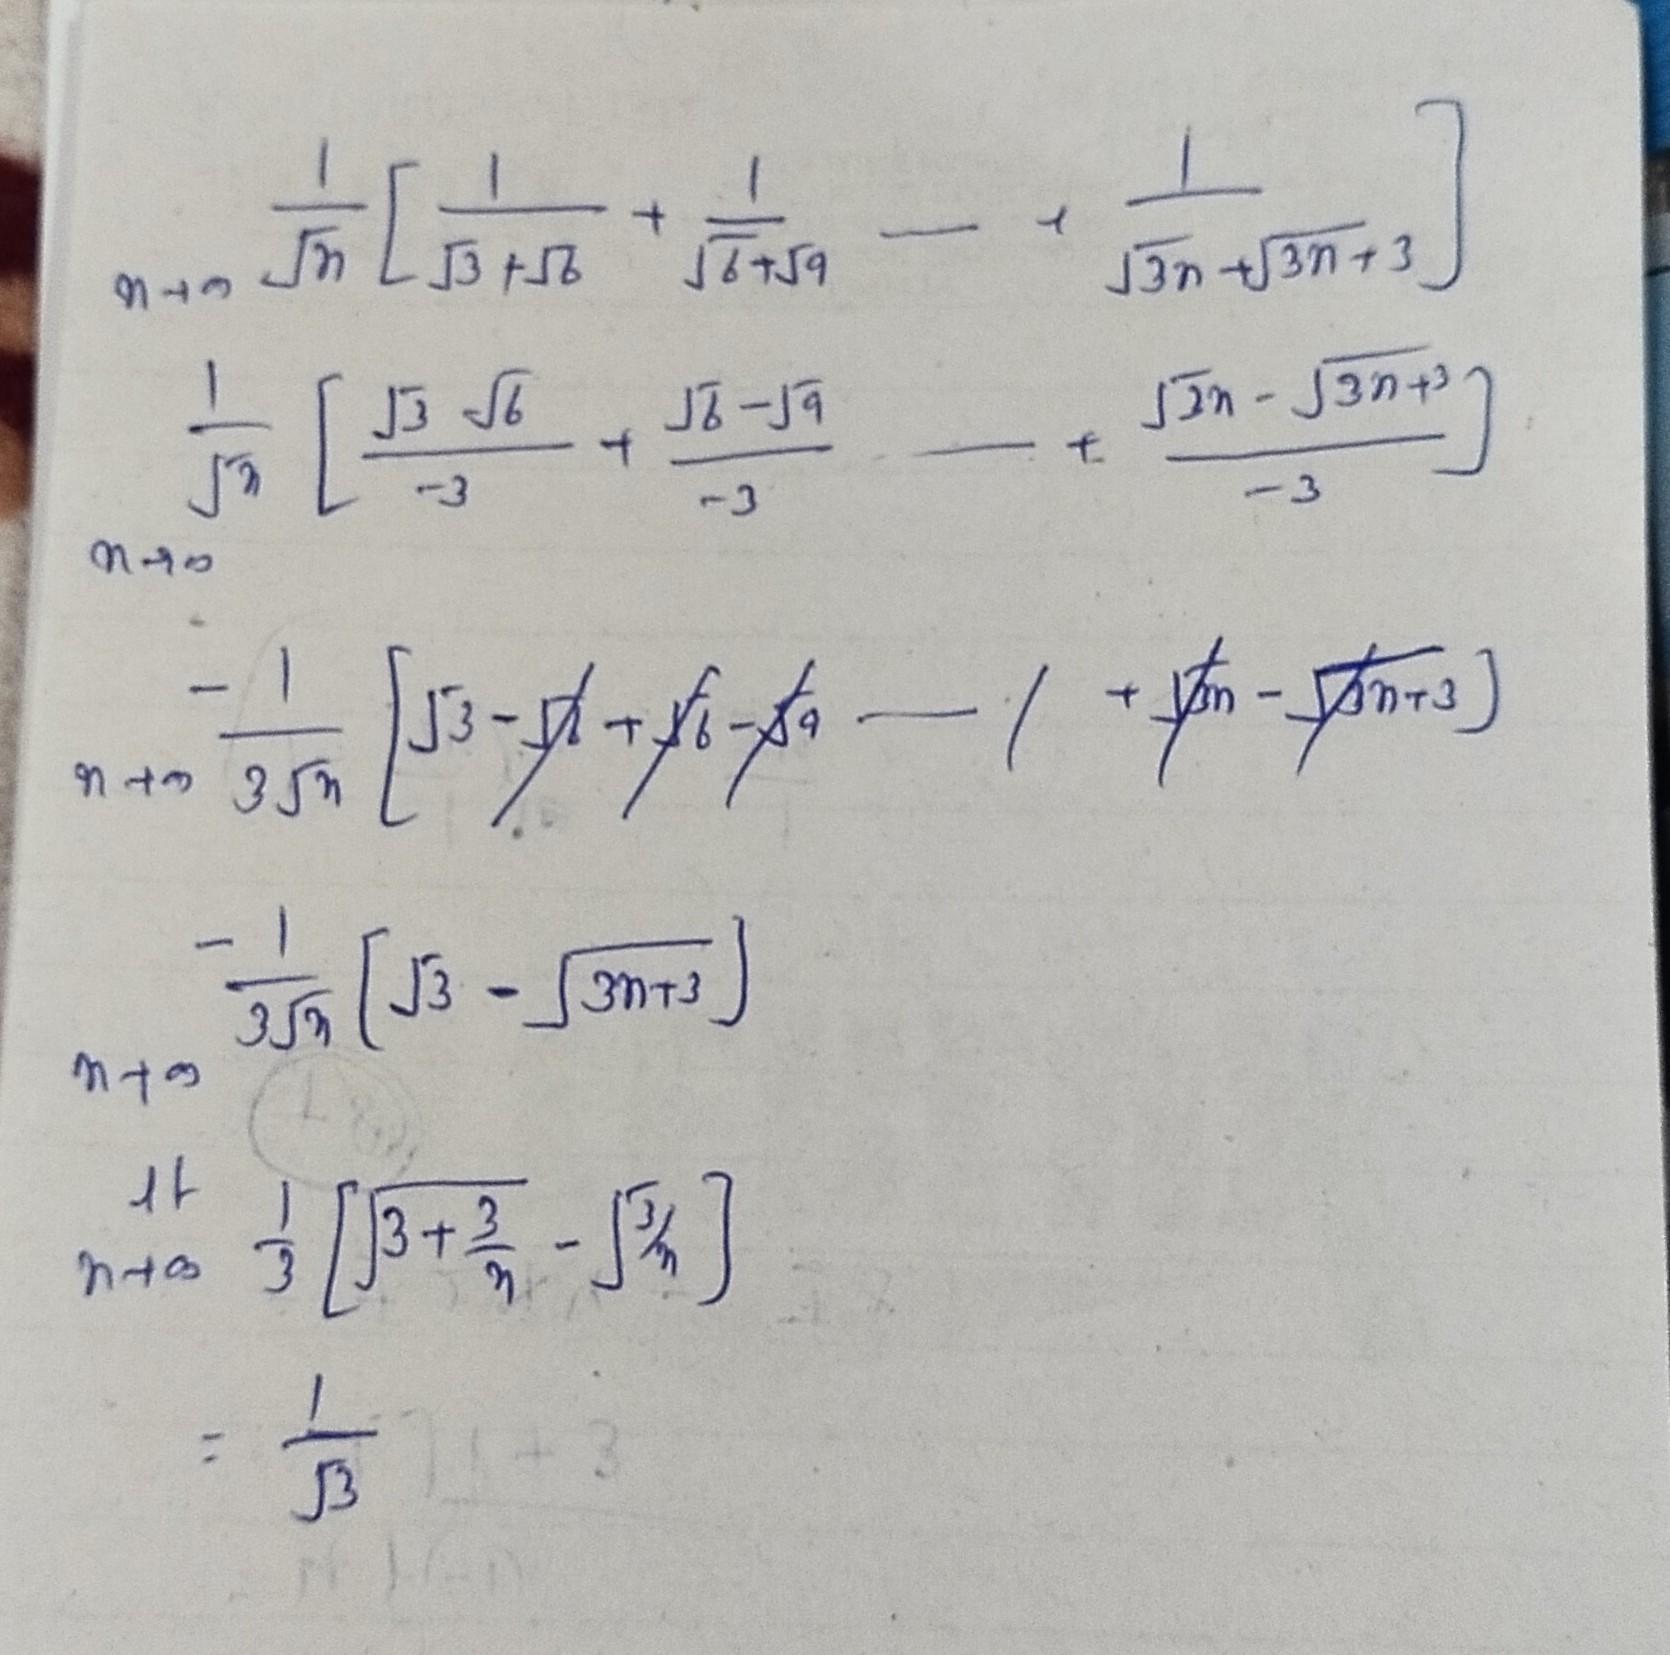 n→∞ 1/√n [ 1/(√3+√6) + 1/(√6+√9) — + 1/(√3n+√3n+3) ]
n→∞ 1/√n [ (√3-√6)/-3 + (√6-√9)/-3 — + (√3n-√3n+3)/-3 ]
n→∞ -1/3√n [√3-√6+√6-√9 — + √3n-√3n+3]
n→∞ -1/3√n [√3-√3n+3]
lt n→∞ 1/3 [√3+3/n - √3/n]
= 1/√3